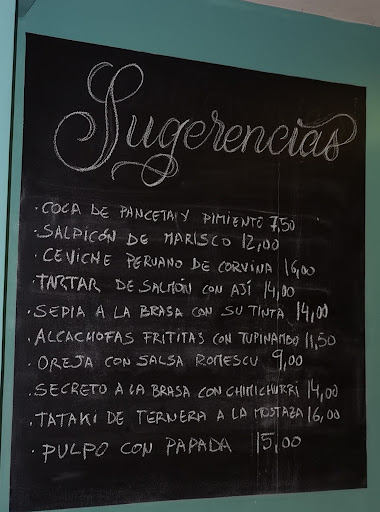 Sugerencias
· COCA DE PANCETA Y PIMIENTO 7,50
· SALPICÓN DE MARISCO 12,00
· CEVICHE PERUANO DE CORVINA 16,00
· TARTAR DE SALMÓN CON AJÍ 14,00
· SEPIA A LA BRASA CON SU TINTA 14,00
· ALCACHOFAS FRITITAS CON TUPINAMBO 11,50
· OREJA CON SALSA ROMESCU 9,00
· SECRETO A LA BRASA CON CHIMICHURRI 14,00
· TATAKI DE TERNERA A LA MOSTAZA 16,00
· PULPO CON PAPADA 15,00